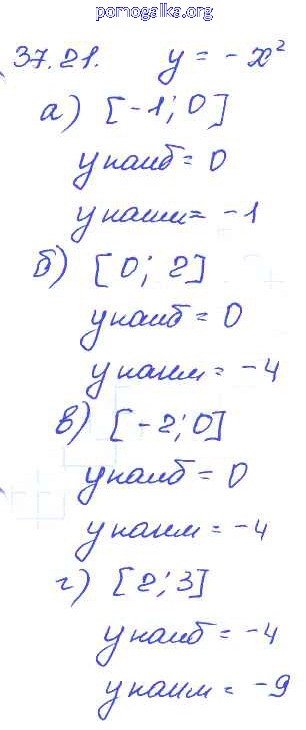 pomogalka.org
37.21. y = -x²
а) [-1; 0]
yнаиб = 0
yнаим = -1
б) [0; 2]
yнаиб = 0
yнаим = -4
в) [-2; 0]
yнаиб = 0
yнаим = -4
г) [2; 3]
yнаиб = -4
yнаим = -9